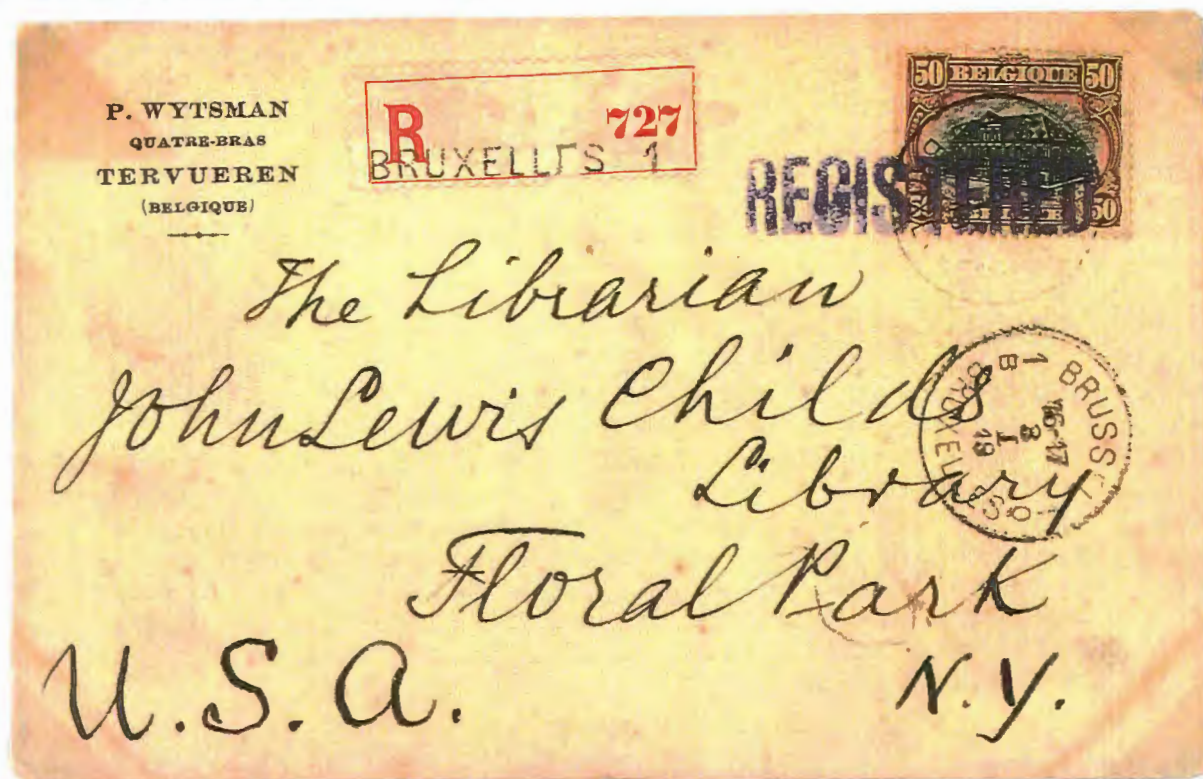 P. WYTSMAN
QUATRE-BRAS
TERVUEREN
(BELGIQUE)
R 727
BRUXELLES 1
50 BELGIQUE 50
50
REGISTERED
The Librarian
John Lewis Childs
Library
Floral Park
N.Y.
U.S.A.
1 BRUSSEL 1
B
15-17
3
I
19
BRUXELLES